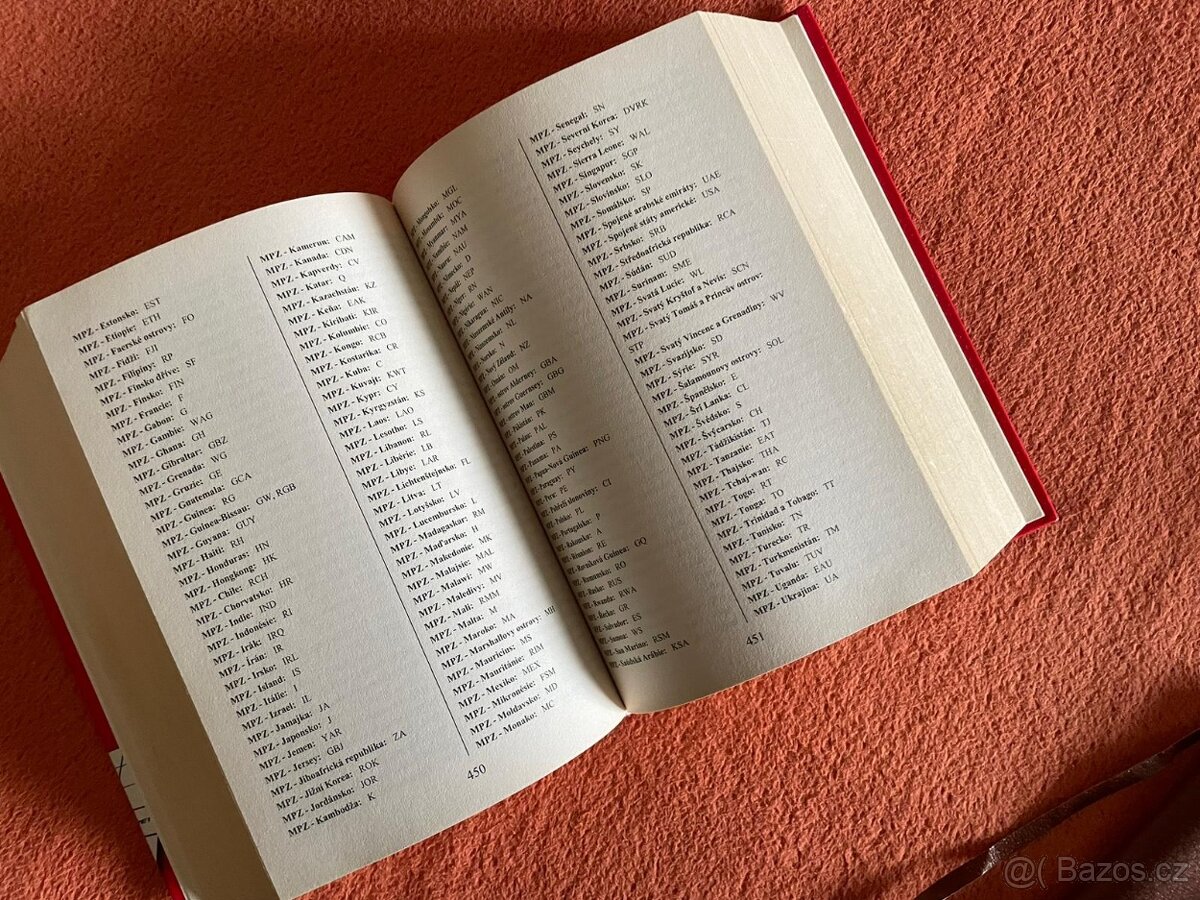 MPZ - Estonsko: EST
MPZ - Etiopie: ETH
MPZ - Faerské ostrovy: FO
MPZ - Fidži: FJI
MPZ - Filipíny: RP
MPZ - Finsko dříve: SF
MPZ - Finsko: FIN
MPZ - Francie: F
MPZ - Gabon: G
MPZ - Gambie: WAG
MPZ - Ghana: GH
MPZ - Gibraltar: GBZ
MPZ - Grenada: WG
MPZ - Gruzie: GE
MPZ - Guatemala: GCA
MPZ - Guinea: RG
MPZ - Guinea-Bissau: GW, RGB
MPZ - Guyana: GUY
MPZ - Haiti: RH
MPZ - Honduras: HN
MPZ - Hongkong: HK
MPZ - Chile: RCH
MPZ - Chorvatsko: HR
MPZ - Indie: IND
MPZ - Indonésie: RI
MPZ - Irák: IRQ
MPZ - Írán: IR
MPZ - Irsko: IRL
MPZ - Island: IS
MPZ - Itálie: I
MPZ - Izrael: IL
MPZ - Jamajka: JA
MPZ - Japonsko: J
MPZ - Jemen: YAR
MPZ - Jersey: GBJ
MPZ - Jihoafrická republika: ZA
MPZ - Jižní Korea: ROK
MPZ - Jordánsko: JOR
MPZ - Kambodža: K
MPZ - Kamerun: CAM
MPZ - Kanada: CDN
MPZ - Kapverdy: CV
MPZ - Katar: Q
MPZ - Kazachstán: KZ
MPZ - Keňa: EAK
MPZ - Kiribati: KIR
MPZ - Kolumbie: CO
MPZ - Kongo: RCB
MPZ - Kostarika: CR
MPZ - Kuba: C
MPZ - Kuvajt: KWT
MPZ - Kypr: CY
MPZ - Kyrgyzstán: KS
MPZ - Laos: LAO
MPZ - Lesotho: LS
MPZ - Libanon: RL
MPZ - Libérie: LB
MPZ - Libye: LAR
MPZ - Lichtenštejnsko: FL
MPZ - Litva: LT
MPZ - Lotyšsko: LV
MPZ - Lucembursko: L
MPZ - Madagaskar: RM
MPZ - Maďarsko: H
MPZ - Makedonie: MK
MPZ - Malajsie: MAL
MPZ - Malawi: MW
MPZ - Maledivy: MV
MPZ - Mali: RMM
MPZ - Malta: M
MPZ - Maroko: MA
MPZ - Marshallovy ostrovy: MH
MPZ - Mauricius: MS
MPZ - Mauritánie: RIM
MPZ - Mexiko: MEX
MPZ - Mikronésie: FSM
MPZ - Moldavsko: MD
MPZ - Monako: MC
450
Mongolsko: MGL
Mosambik: MOC
Myanmar: MYA
Namibie: NAM
Nauru: NAU
Německo: D
Nepál: NEP
Niger: RN
Nigérie: WAN
Nikaragua: NIC
Nizozemské Antily: NA
Nizozemsko: NL
Norsko: N
Nový Zéland: NZ
MPZ - Omán: OM
MPZ - ostrov Alderney: GBA
MPZ - ostrov Guernsey: GBG
MPZ - ostrov Man: GBM
MPZ - Pákistán: PK
MPZ - Palau: PAL
MPZ - Palestina: PS
MPZ - Panama: PA
MPZ - Papua-Nová Guinea: PNG
MPZ - Paraguay: PY
MPZ - Peru: PE
MPZ - Pobřeží slonoviny: CI
MPZ - Polsko: PL
MPZ - Portugalsko: P
MPZ - Rakousko: A
MPZ - Réunion: RE
MPZ - Rovníková Guinea: GQ
MPZ - Rumunsko: RO
MPZ - Rusko: RUS
MPZ - Rwanda: RWA
MPZ - Řecko: GR
MPZ - Salvador: ES
MPZ - Samoa: WS
MPZ - San Marino: RSM
MPZ - Saúdská Arábie: KSA
MPZ - Senegal: SN
MPZ - Severní Korea: DVRK
MPZ - Seychely: SY
MPZ - Sierra Leone: WAL
MPZ - Singapur: SGP
MPZ - Slovensko: SK
MPZ - Slovinsko: SLO
MPZ - Somálsko: SP
MPZ - Spojené arabské emiráty: UAE
MPZ - Spojené státy americké: USA
MPZ - Srbsko: SRB
MPZ - Středoafrická republika: RCA
MPZ - Súdán: SUD
MPZ - Surinam: SME
MPZ - Svatá Lucie: WL
MPZ - Svatý Kryštof a Nevis: SCN
MPZ - Svatý Tomáš a Princův ostrov:
STP
MPZ - Svatý Vincenc a Grenadiny: WV
MPZ - Svazijsko: SD
MPZ - Sýrie: SYR
MPZ - Šalamounovy ostrovy: SOL
MPZ - Španělsko: E
MPZ - Šrí Lanka: CL
MPZ - Švédsko: S
MPZ - Švýcarsko: CH
MPZ - Tádžikistán: TJ
MPZ - Tanzanie: EAT
MPZ - Thajsko: THA
MPZ - Tchaj-wan: RC
MPZ - Togo: RT
MPZ - Tonga: TO
MPZ - Trinidad a Tobago: TT
MPZ - Tunisko: TN
MPZ - Turecko: TR
MPZ - Turkmenistán: TM
MPZ - Tuvalu: TUV
MPZ - Uganda: EAU
MPZ - Ukrajina: UA
451
@( Bazos.cz